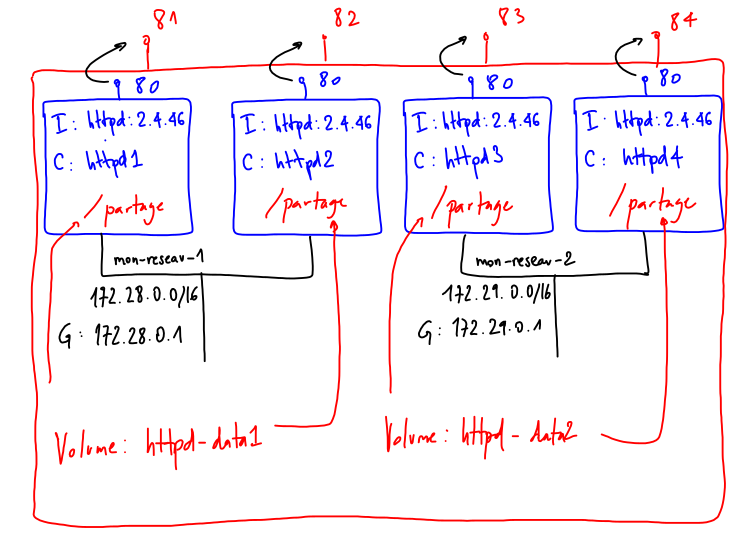 81
82
83
84
80
80
80
80
I: httpd:2.4.46
C: httpd1
/partage
I: httpd:2.4.46
C: httpd2
/partage
I: httpd:2.4.46
C: httpd3
/partage
I: httpd:2.4.46
C: httpd4
/partage
mon-reseau-1
172.28.0.0/16
G: 172.28.0.1
mon-reseau-2
172.29.0.0/16
G: 172.29.0.1
Volume: httpd-data1
Volume: httpd-data2